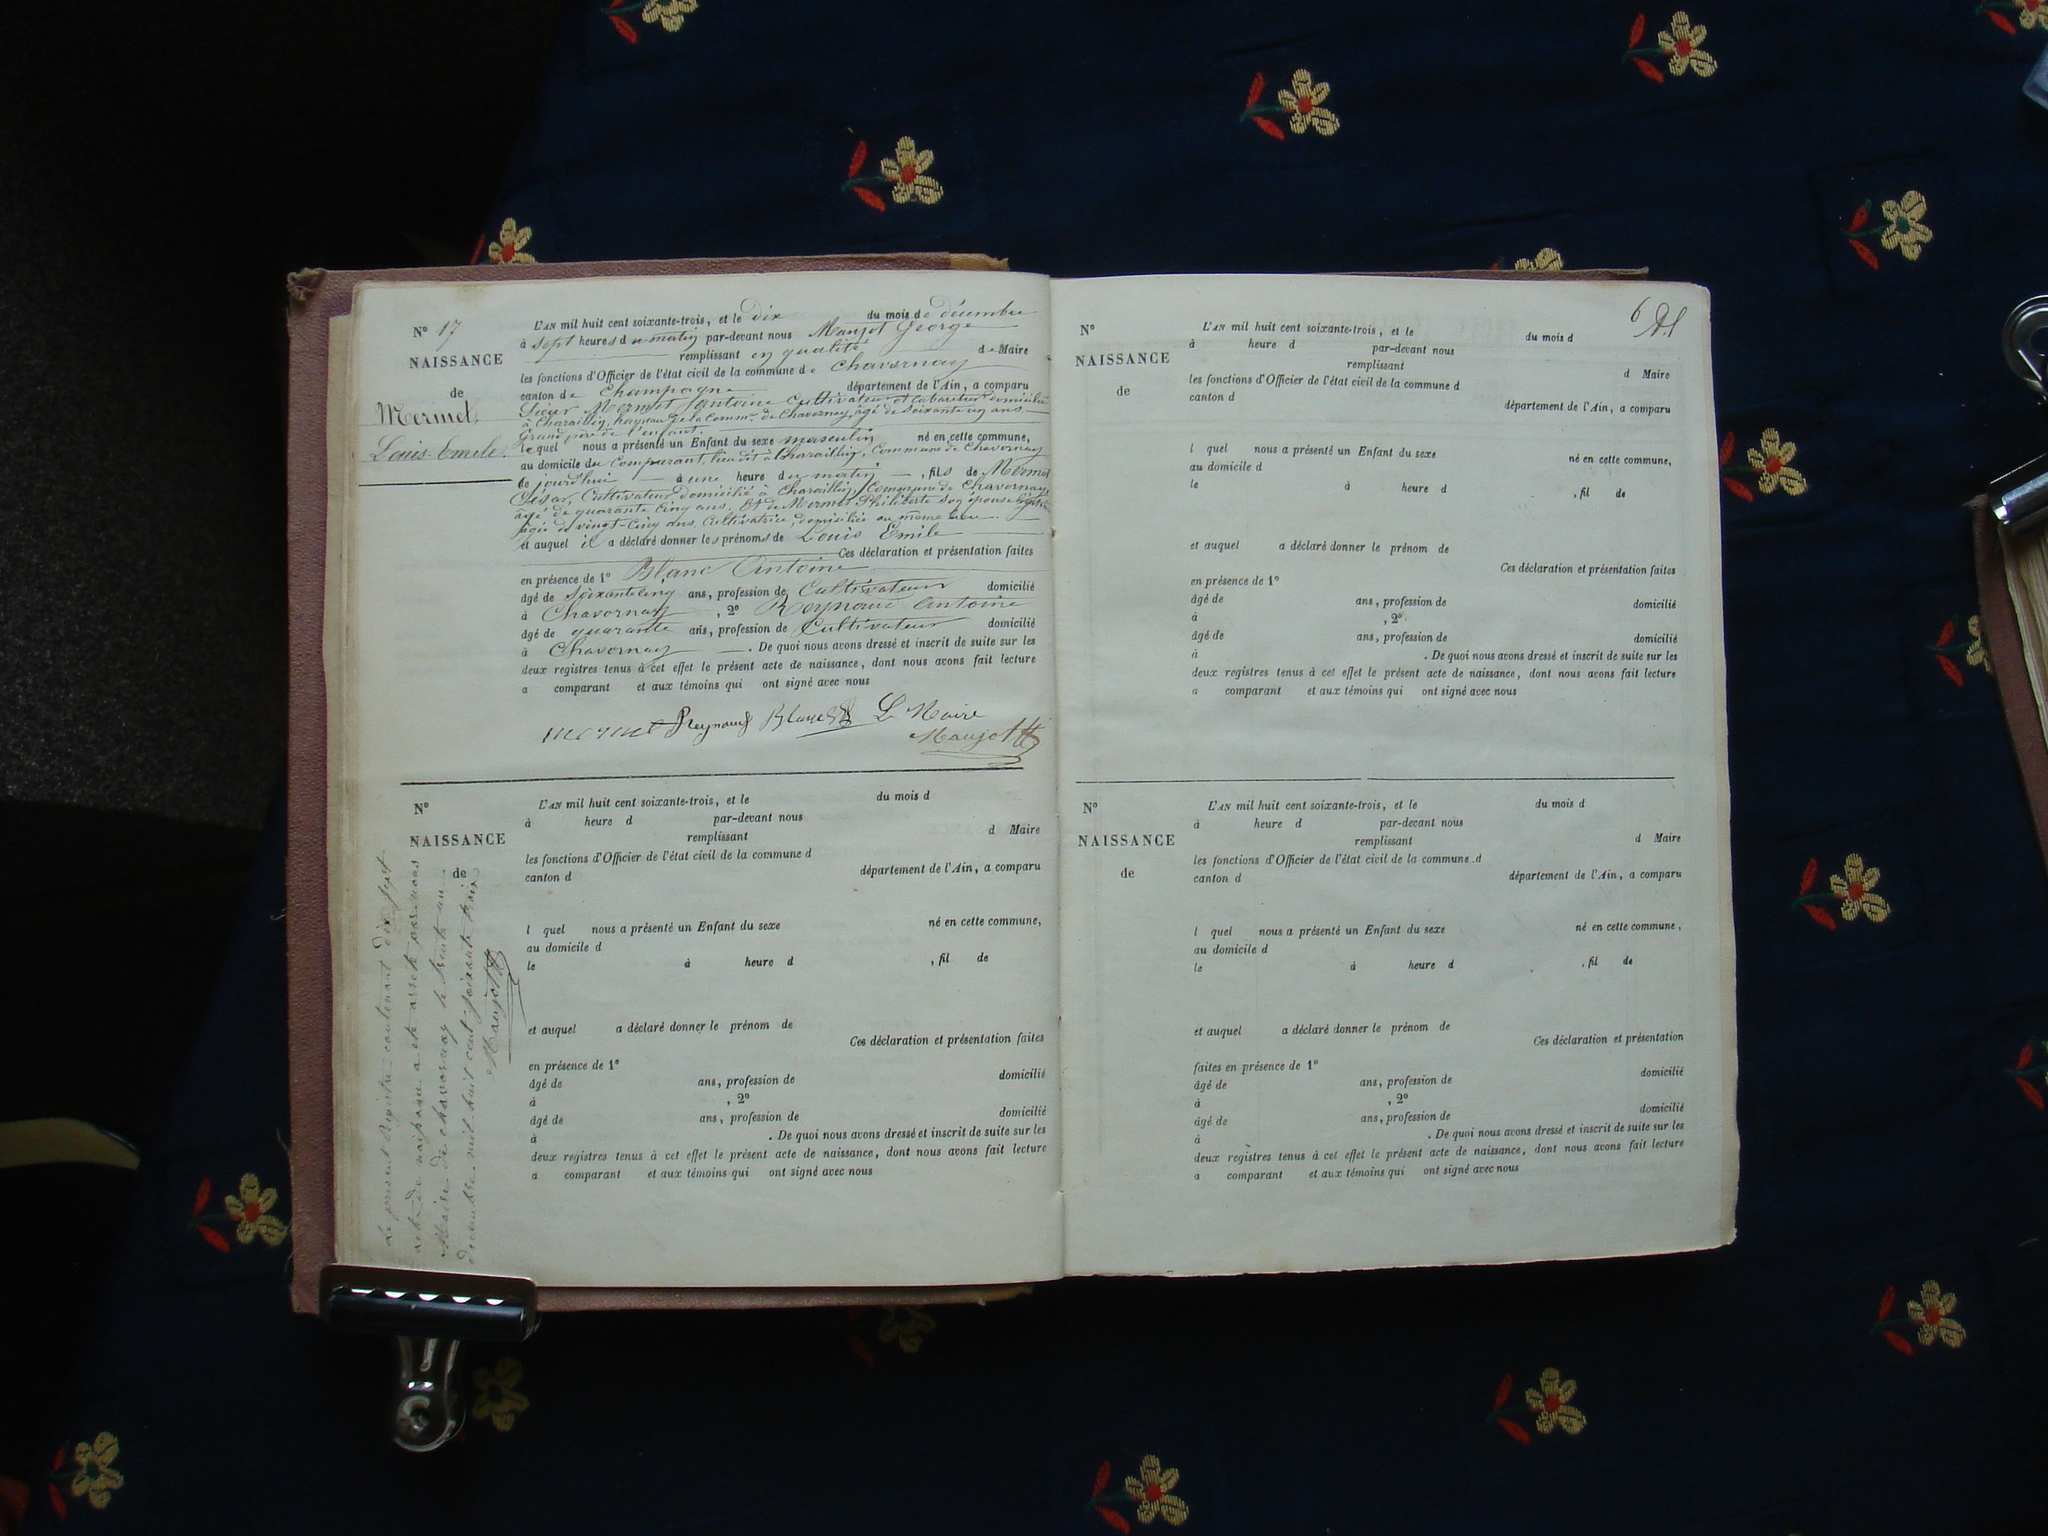 N° 17
NAISSANCE
de
Mermet
Louis Emile
L'AN mil huit cent soixante-trois, et le dix du mois de décembre
à sept heures du matin par-devant nous Manjot George
remplissant en qualité de Maire
les fonctions d'Officier de l'état civil de la commune de Chavornay
canton de Champagne département de l'Ain, a comparu
Sieur Mermet Antoine Cultivateur et cabaretier domicilié
à Charaillin, hameau de la Comm. de Chavornay, âgé de soixante un ans
Grand père de l'enfant.
lequel nous a présenté un Enfant du sexe masculin né en cette commune,
au domicile du Comparant, lieu dit à Charaillin, Commune de Chavornay
le jourd'hui à une heure du matin, fils de Mermet
César, Cultivateur domicilié à Charaillin, Commune de Chavornay
âgé de quarante cinq ans. Et de Mermet Philiberte son épouse
âgée de vingt-cinq ans, Cultivatrice, domiciliée au même lieu
et auquel il a déclaré donner les prénoms de Louis Emile
Ces déclaration et présentation faites
en présence de 1° Blanc Antoine
âgé de soixante cinq ans, profession de Cultivateur domicilié
à Chavornay, 2° Reynaud Antoine
âgé de quarante ans, profession de Cultivateur domicilié
à Chavornay. De quoi nous avons dressé et inscrit de suite sur les
deux registres tenus à cet effet le présent acte de naissance, dont nous avons fait lecture
a comparant et aux témoins qui ont signé avec nous
mermet Reynaud Blanc Le Maire
Manjot
N°
NAISSANCE
de
L'AN mil huit cent soixante-trois, et le du mois d
à heure d par-devant nous
remplissant d Maire
les fonctions d'Officier de l'état civil de la commune d
canton d département de l'Ain, a comparu
l quel nous a présenté un Enfant du sexe né en cette commune,
au domicile d
le à heure d , fil de
et auquel a déclaré donner le prénom de
Ces déclaration et présentation faites
en présence de 1°
âgé de ans, profession de domicilié
à , 2°
âgé de ans, profession de domicilié
à . De quoi nous avons dressé et inscrit de suite sur les
deux registres tenus à cet effet le présent acte de naissance, dont nous avons fait lecture
a comparant et aux témoins qui ont signé avec nous
Le présent Registre contenant dix sept
actes de naissance a été arrêté par nous
Maire de chavornay le trente un
décembre mil huit cent soixante trois
Manjot
6
N°
NAISSANCE
de
L'AN mil huit cent soixante-trois, et le du mois d
à heure d par-devant nous
remplissant d Maire
les fonctions d'Officier de l'état civil de la commune d
canton d
département de l'Ain, a comparu
l quel nous a présenté un Enfant du sexe né en cette commune,
au domicile d
le à heure d , fil de
et auquel a déclaré donner le prénom de
Ces déclaration et présentation faites
en présence de 1°
âgé de ans, profession de domicilié
à , 2°
âgé de ans, profession de domicilié
à . De quoi nous avons dressé et inscrit de suite sur les
deux registres tenus à cet effet le présent acte de naissance, dont nous avons fait lecture
a comparant et aux témoins qui ont signé avec nous
N°
NAISSANCE
de
L'AN mil huit cent soixante-trois, et le du mois d
à heure d par-devant nous
remplissant d Maire
les fonctions d'Officier de l'état civil de la commune d
canton d département de l'Ain, a comparu
l quel nous a présenté un Enfant du sexe né en cette commune,
au domicile d
le à heure d , fil de
et auquel a déclaré donner le prénom de
Ces déclaration et présentation
faites en présence de 1°
âgé de ans, profession de domicilié
à , 2°
âgé de ans, profession de domicilié
à . De quoi nous avons dressé et inscrit de suite sur les
deux registres tenus à cet effet le présent acte de naissance, dont nous avons fait lecture
a comparant et aux témoins qui ont signé avec nous